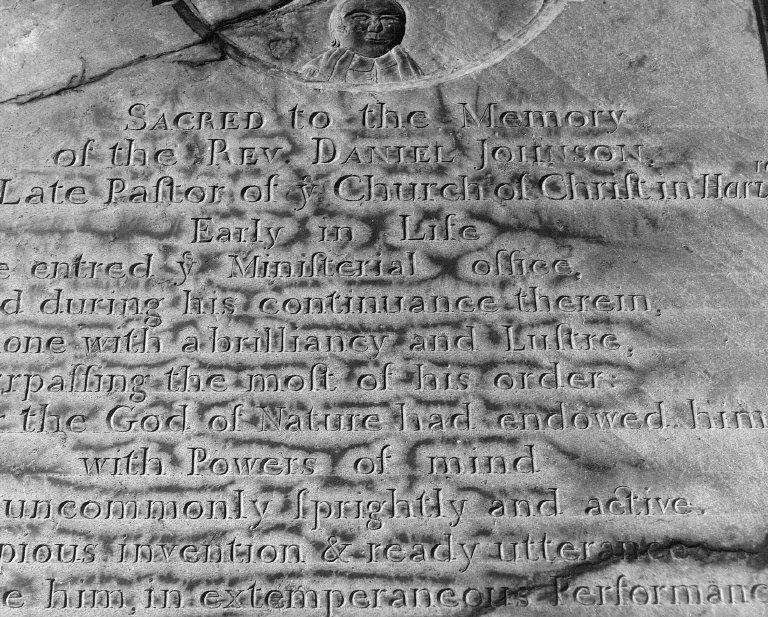 SACRED to the Memory
of the REV. DANIEL JOHNSON,
Late Paſtor of yͤ Church of Chriſt in Harvͩ
Early in Life
e entred yͤ Miniſterial office,
d during his continuance therein,
one with a brilliancy and Luſtre,
rpaſſing the moſt of his order:
r the God of Nature had endowed him
with Powers of mind
uncommonly ſprightly and active.
pious invention & ready utterance
e him, in extemperaneous Performanc